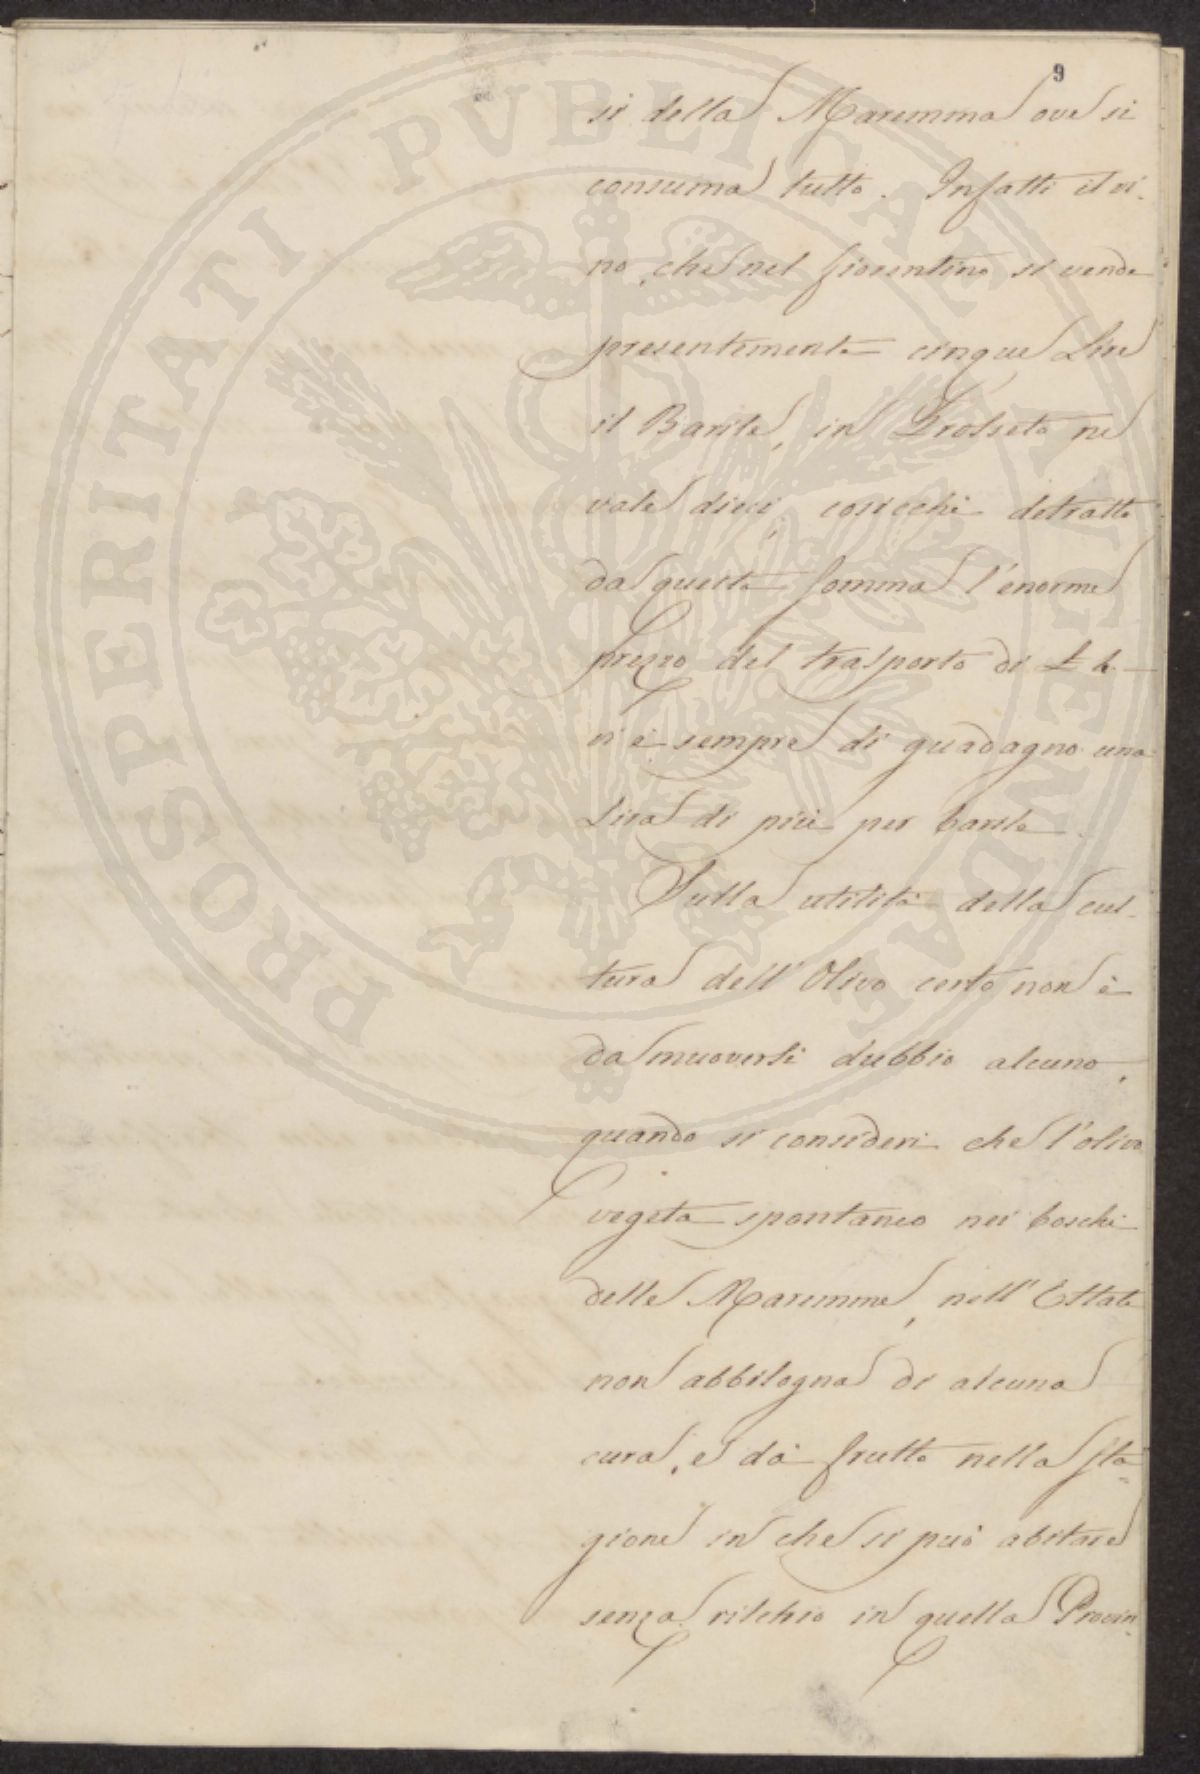 9
si della Maremma ove si
consuma tutto. Infatti il vi-
no, che nel fiorentino si vende
presentemente cinque Lire
il Barile, in Grosseto ne
vale dieci, cosicchè detratto
da questa somma l'enorme
prezzo del trasporto di £ 4
vi è sempre di guadagno una
Lira di più per barile.
Sulla utilità della cul-
tura dell'Olivo certo non è
da muoversi dubbio alcuno,
quando si consideri che l'olivo
vegeta spontaneo nei boschi
delle Maremme, nell'Estate
non abbisogna di alcuna
cura, e dà frutto nella sta=
gione in che si può abitare
senza rischio in quella Provin-
PROSPERITATI PVBLICAE AVGENDAE